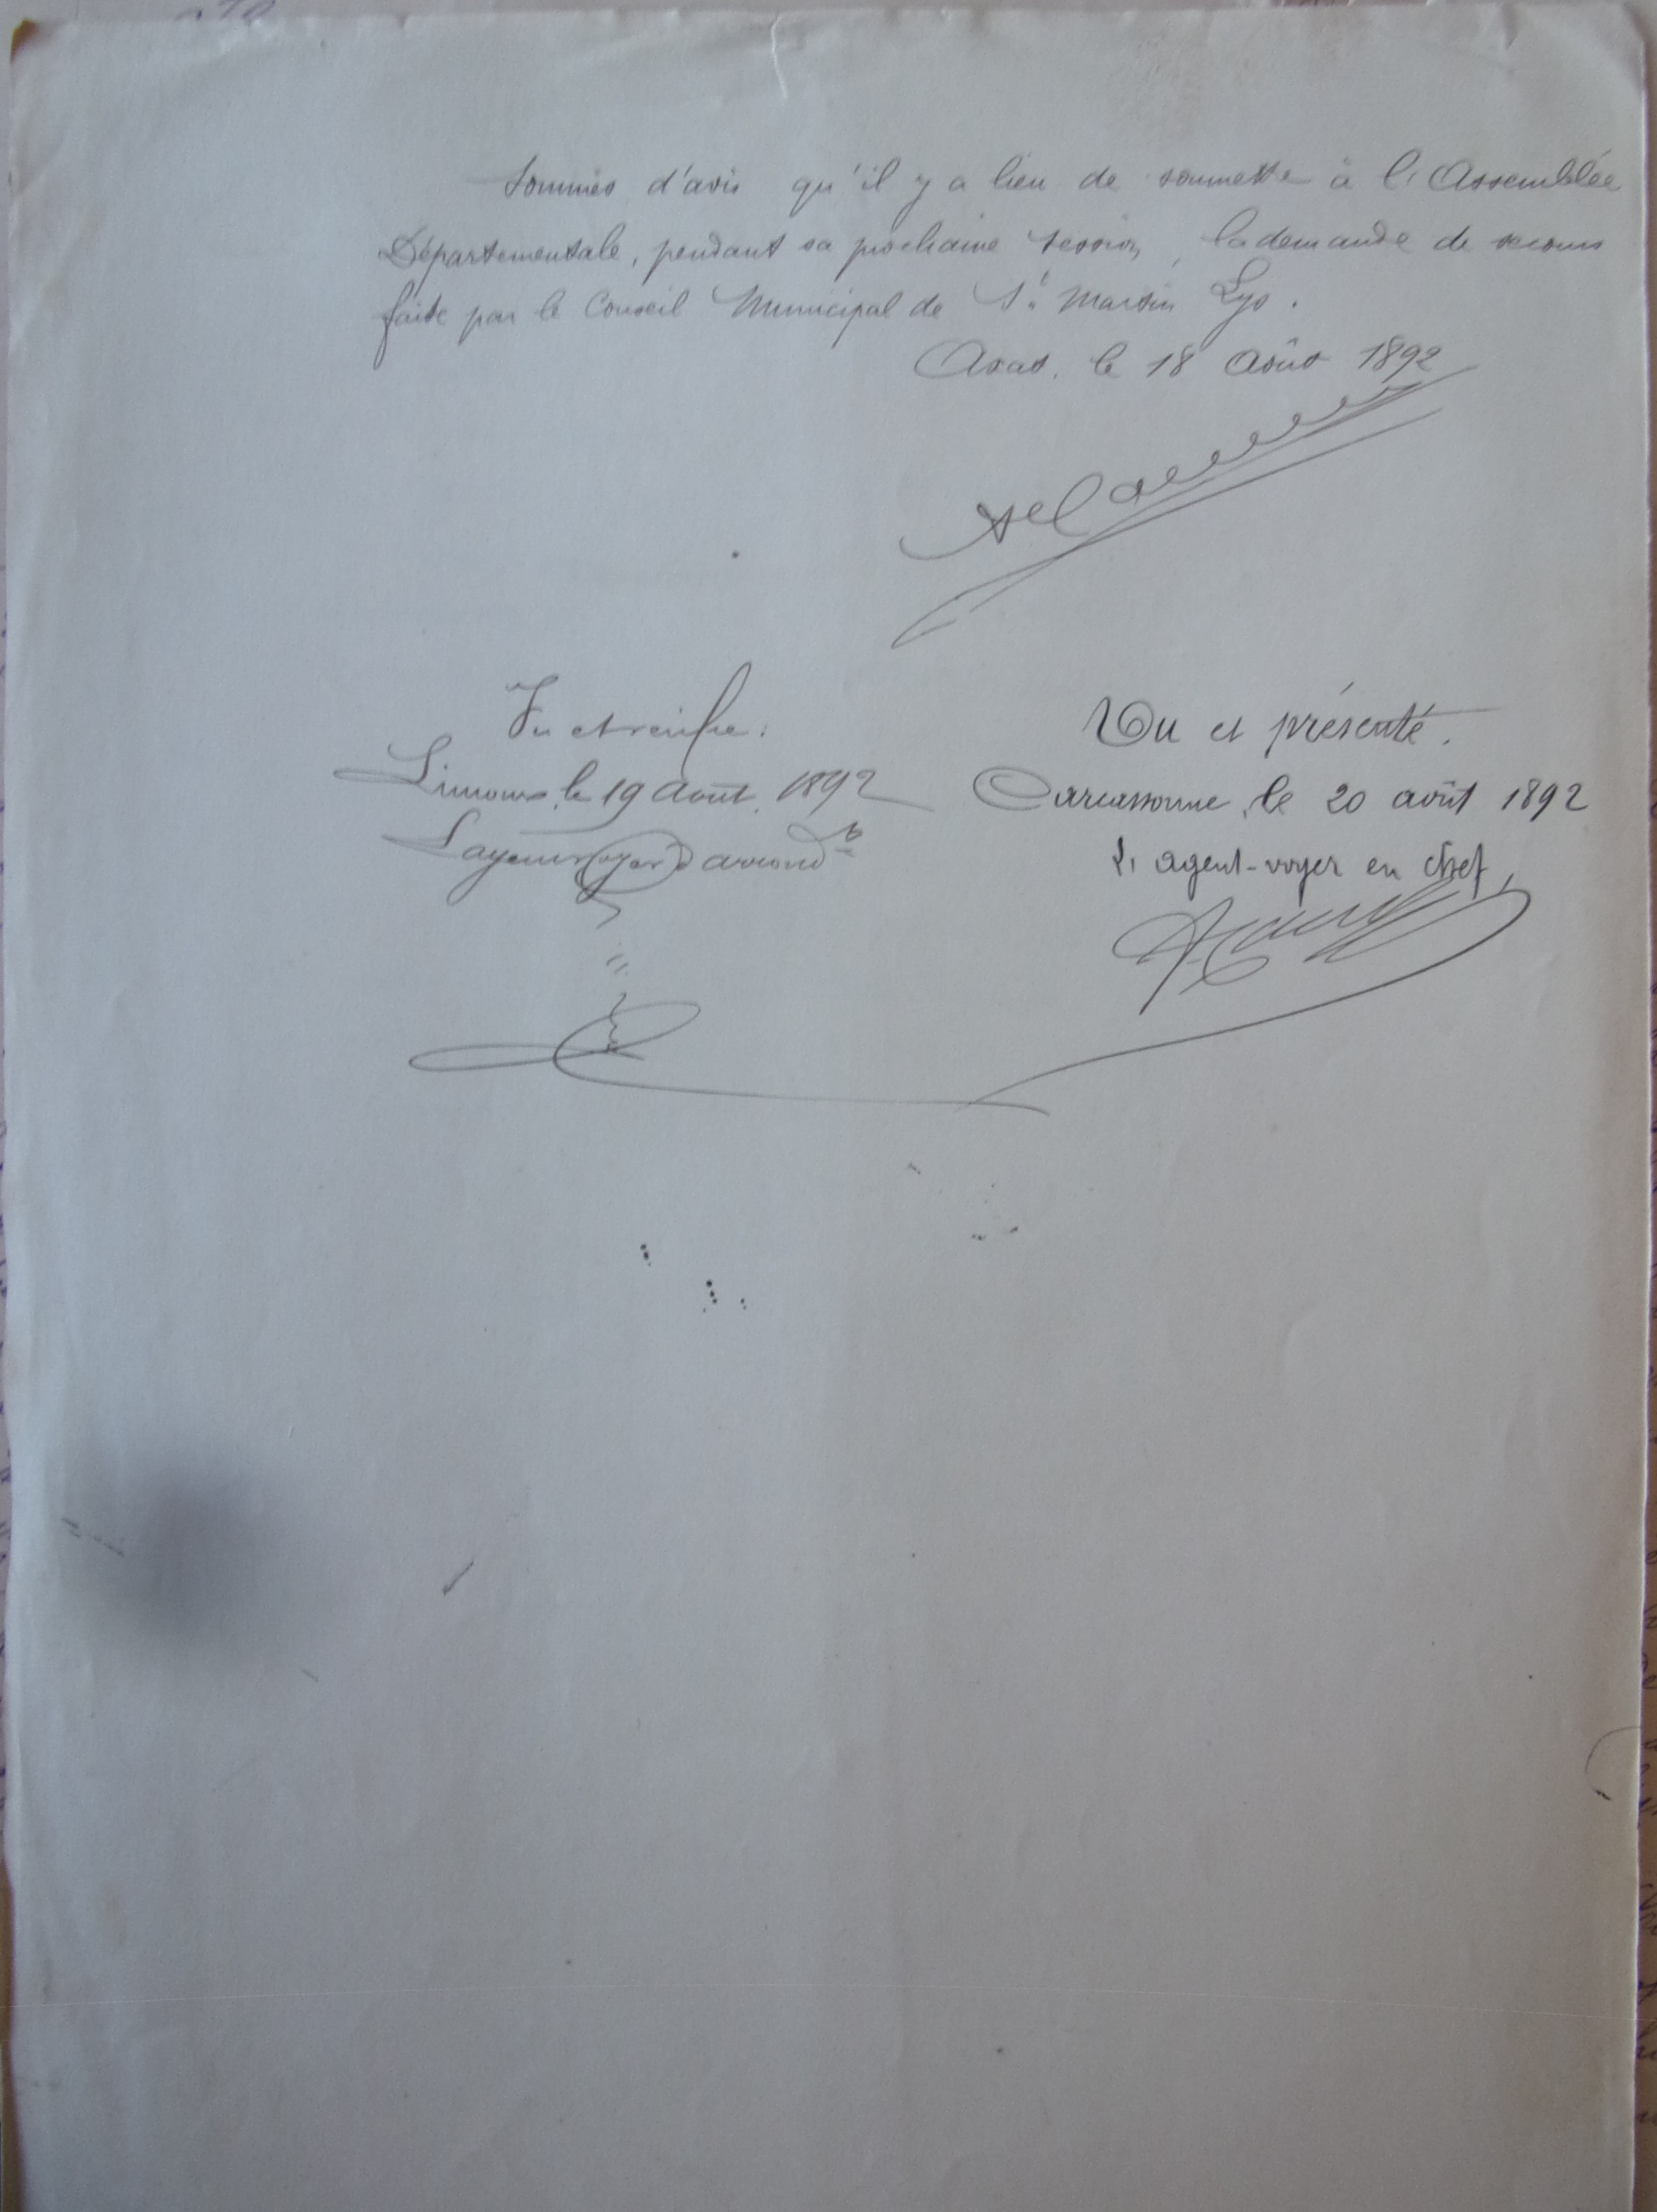 Sommes d'avis qu'il y a lieu de soumettre à l'Assemblée
Départementale, pendant sa prochaine session, la demande de secours
faite par le Conseil Municipal de St Martin Lys.
Axat, le 18 Août 1892
Vu et vérifié:
Limoux, le 19 août 1892
L'agent voyer d'arrondt
Vu et présenté.
Carcassonne, le 20 août 1892
L'agent-voyer en chef,